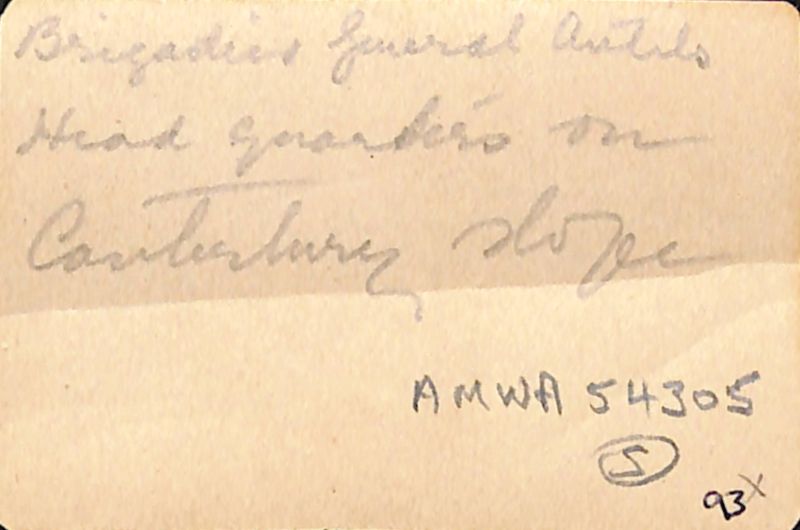 Brigadier General Antils
Head quarters on
Canterbury slope
AMWA 54305
S
93 X